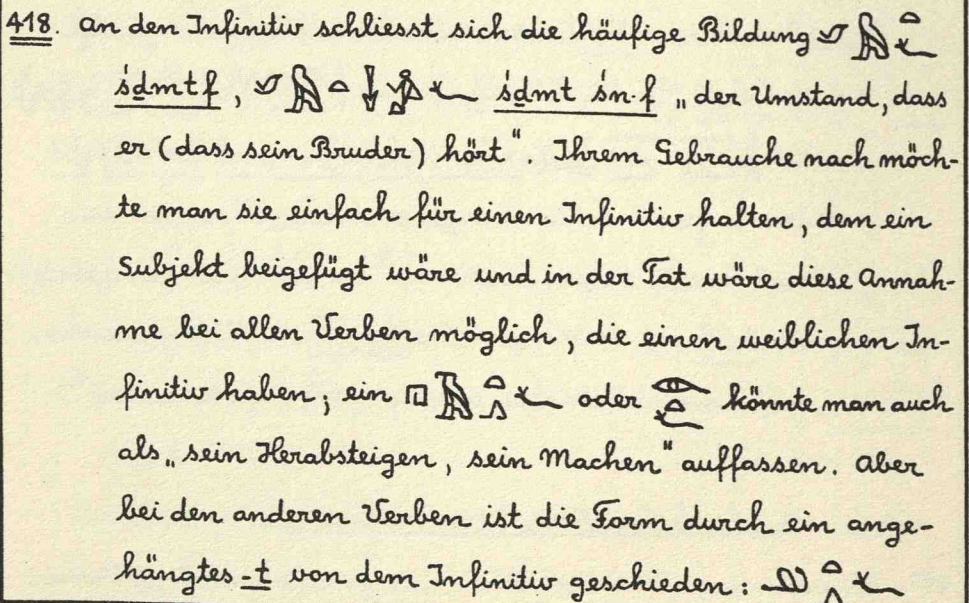 418. An den Infinitiv schliesst sich die häufige Bildung 𓄔𓅓𓏏𓆑
śḏmtf, 𓄔𓅓𓏏𓌢𓀀𓆑 śḏmt śn·f „der Umstand, dass
er (dass sein Bruder) hört". Ihrem Gebrauche nach möch-
te man sie einfach für einen Infinitiv halten, dem ein
Subjekt beigefügt wäre und in der Tat wäre diese Annah-
me bei allen Verben möglich, die einen weiblichen In-
finitiv haben; ein 𓉔𓄿𓏏𓂻𓆑 oder 𓁹𓏏𓆑 könnte man auch
als „sein Herabsteigen, sein Machen" auffassen. Aber
bei den anderen Verben ist die Form durch ein ange-
hängtes -t von dem Infinitiv geschieden: